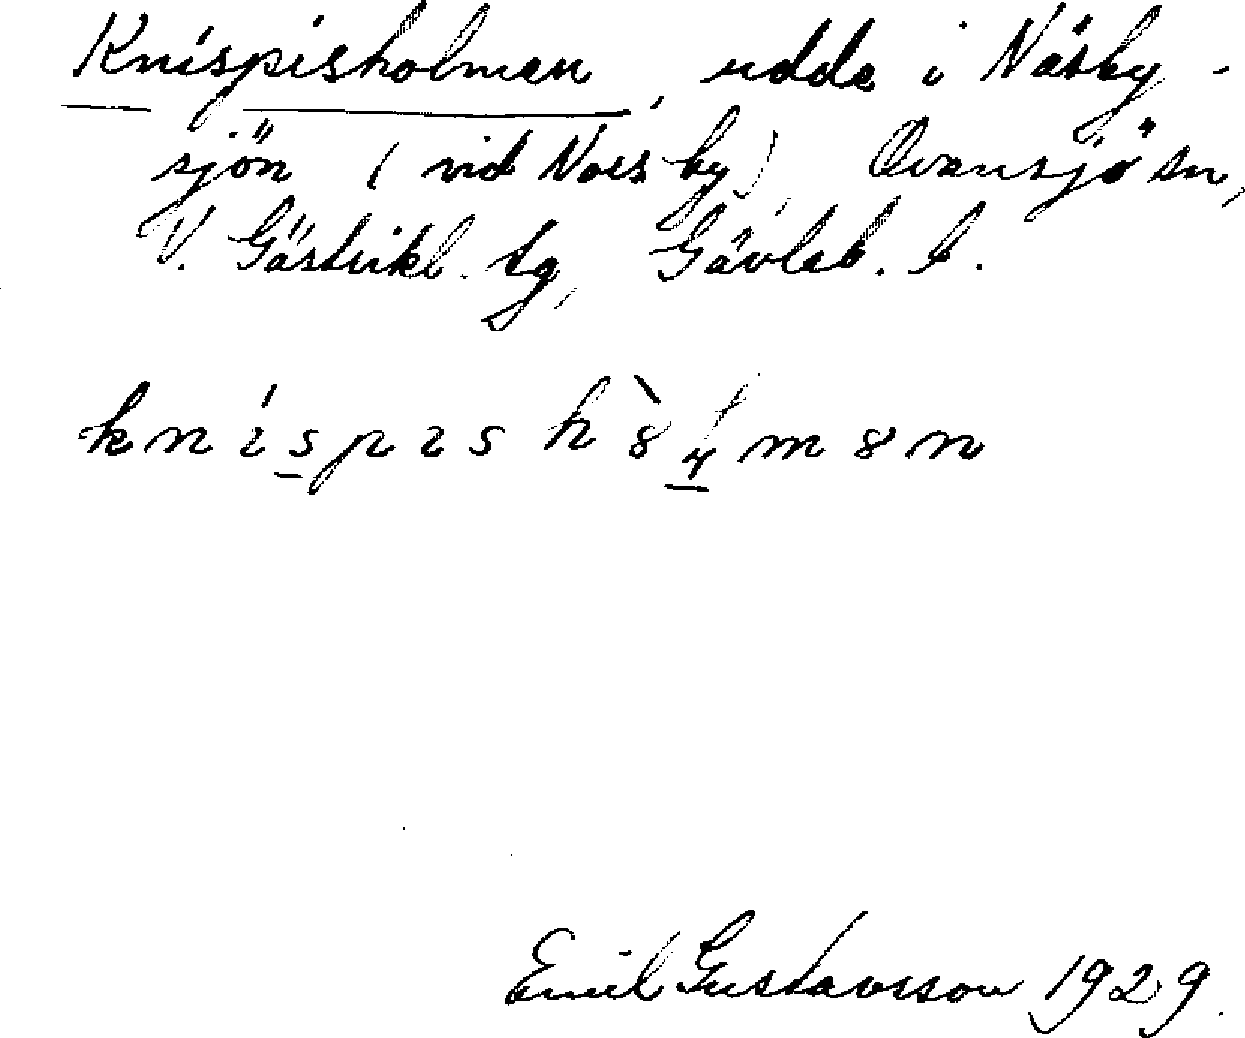 Knispisholmen, udde i Näsby-
sjön (vid Näs by), Ovansjö sn,
V. Gästrikl. tg, Gävleb. l.
Emil Gustavsson 1929.